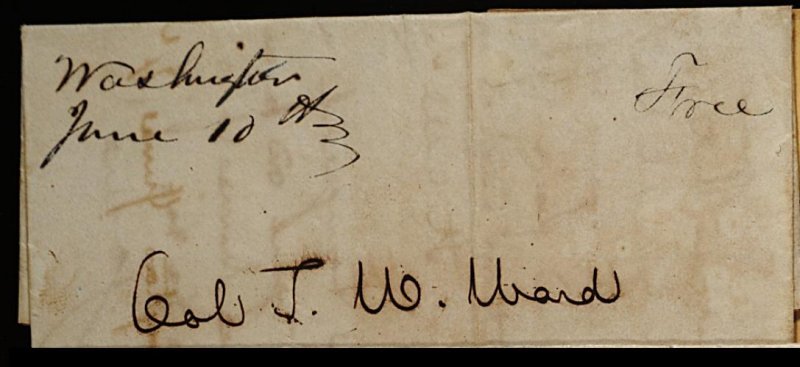 Washington
June 10th
Free
Col T. W. Ward